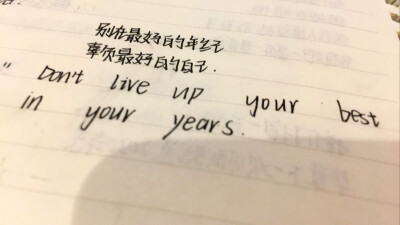 别在最好的年纪
辜负最好的自己.
"Don't live up your best
in your years.